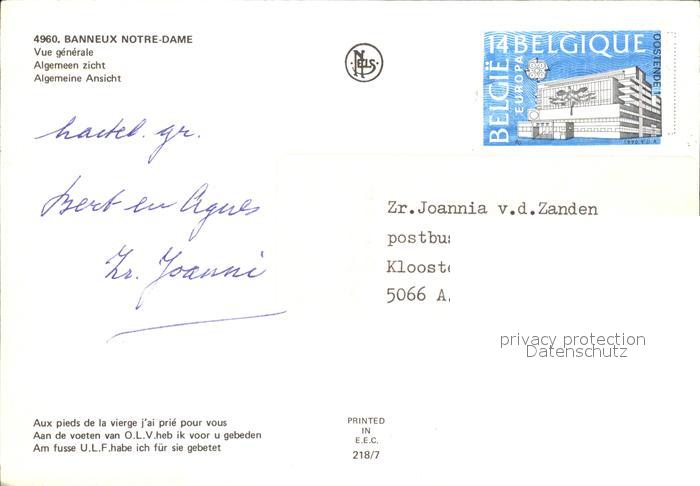 4960. BANNEUX NOTRE-DAME
Vue générale
Algemeen zicht
Algemeine Ansicht
NELS
14 BELGIQUE
BELGIË
EUROPA
OOSTENDE 1
1990
hartel. gr.
Bert en Agnes
Zr. Joanni
Zr.Joannia v.d.Zanden
postbus
Klooste
5066 A.
privacy protection
Datenschutz
Aux pieds de la vierge j'ai prié pour vous
Aan de voeten van O.L.V.heb ik voor u gebeden
Am fusse U.L.F.habe ich für sie gebetet
PRINTED
IN
E.E.C.
218/7